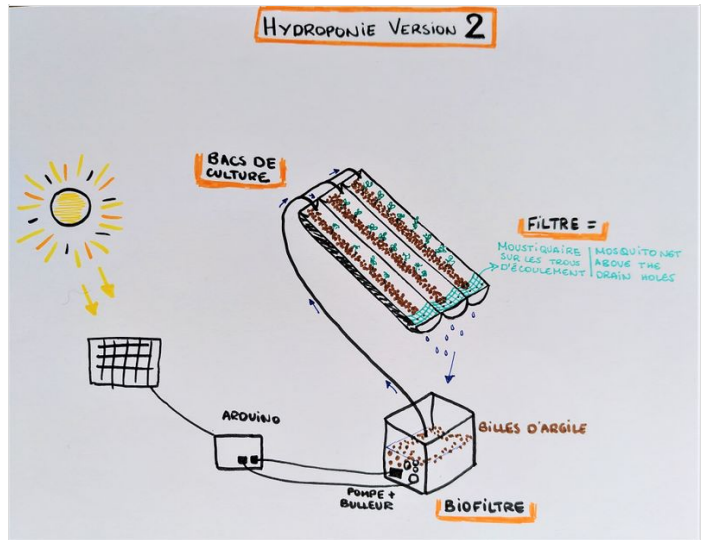 HYDROPONIE VERSION 2
BACS DE
CULTURE
FILTRE =
MOUSTIQUAIRE
SUR LES TROUS
D'ÉCOULEMENT
MOSQUITO NET
ABOVE THE
DRAIN HOLES
ARDUINO
BILLES D'ARGILE
POMPE +
BULLEUR
BIOFILTRE